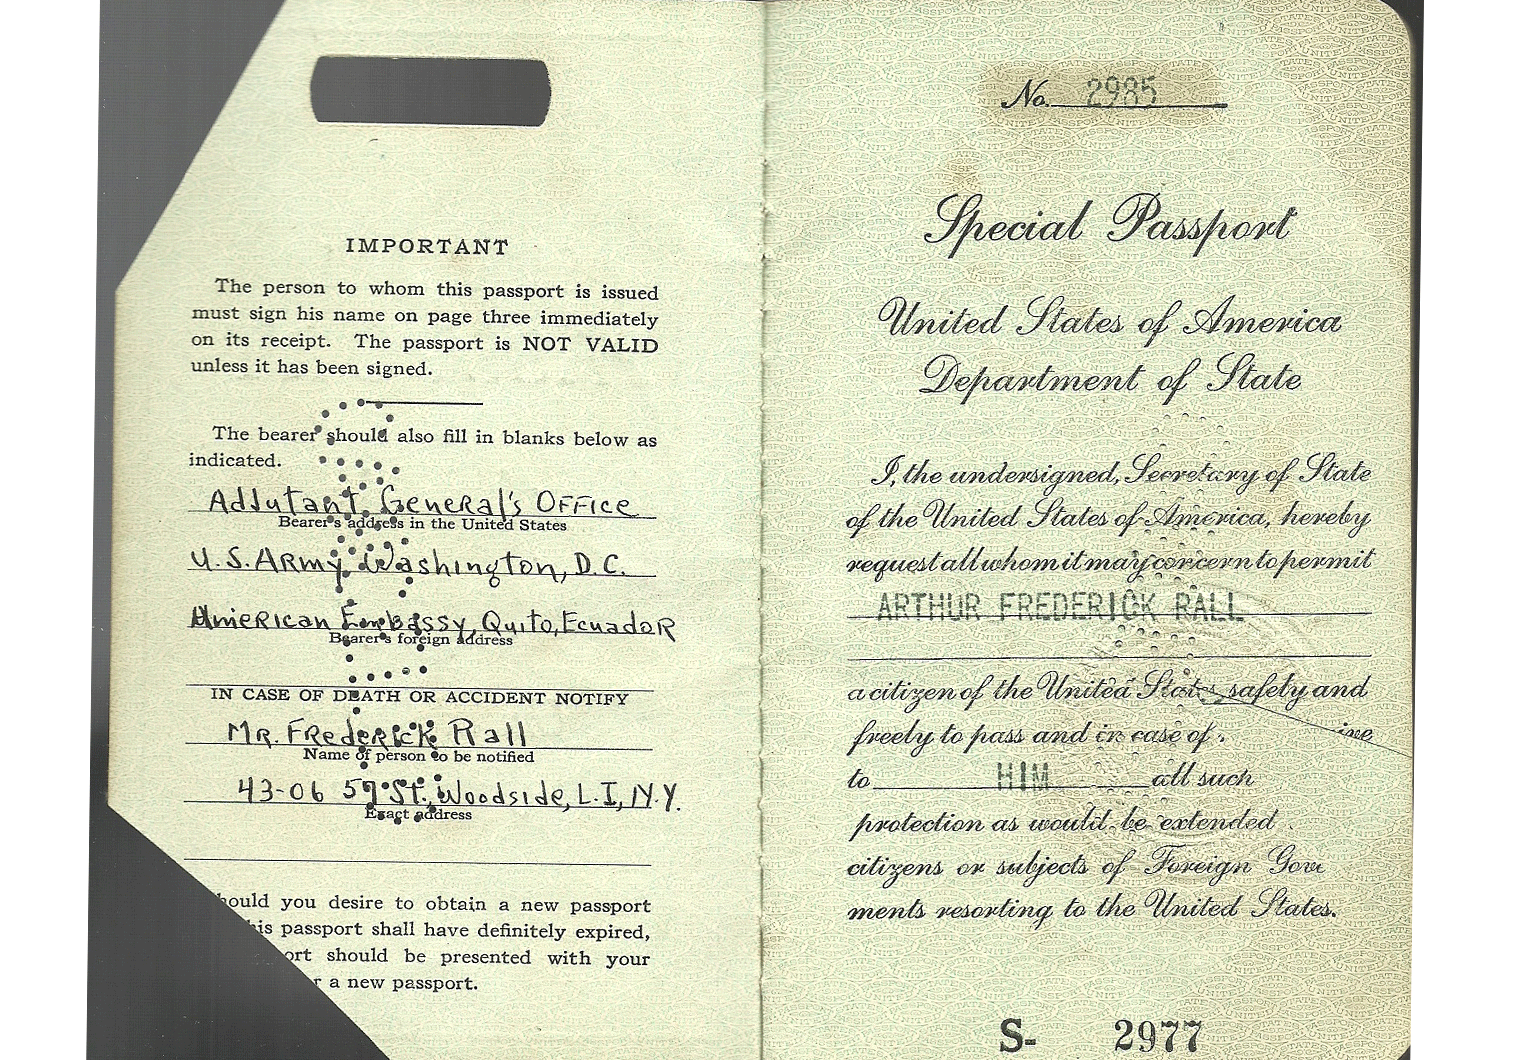 IMPORTANT
The person to whom this passport is issued
must sign his name on page three immediately
on its receipt. The passport is NOT VALID
unless it has been signed.
The bearer should also fill in blanks below as
indicated.
Adjutant General's Office
Bearer's address in the United States
U.S. Army, Washington, D.C.
American Embassy, Quito, Ecuador
Bearer's foreign address
IN CASE OF DEATH OR ACCIDENT NOTIFY
Mr. Frederick Rall
Name of person to be notified
43-06 57 St., Woodside, L.I., N.Y.
Exact address
hould you desire to obtain a new passport
is passport shall have definitely expired,
ort should be presented with your
r a new passport.
No. 2985
Special Passport
United States of America
Department of State
I, the undersigned, Secretary of State
of the United States of America, hereby
request all whom it may concern to permit
ARTHUR FREDERICK RALL
a citizen of the United States safely and
freely to pass and in case of
to HIM all such
protection as would be extended
citizens or subjects of Foreign Gove
ments resorting to the United States.
S- 2977